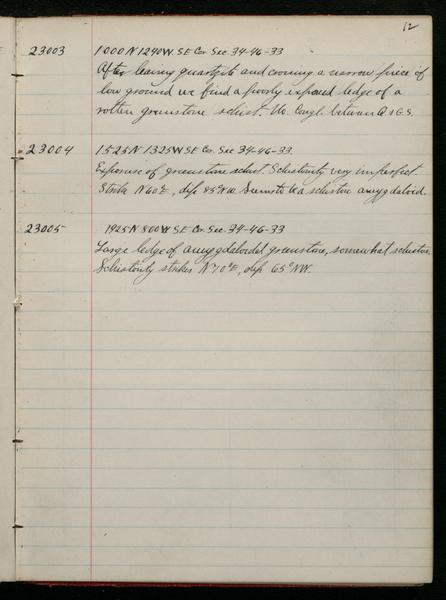 12
23003 1000 N 1240 W. SE Cor. Sec. 34-46-33
After leaving quartzite and crossing a narrow piece of
low ground we find a poorly exposed ledge of a
rotten greenstone schist. No Congl. between Q & G.S.
23004 1525 N 1325 W SE Cor. Sec 34-46-33
Exposure of greenstone schist. Schistosity very imperfect.
Strike N 60° E, dip 85° NW. Seems to be a schistose amygdaloid.
23005 1925 N 800 W SE Cor. Sec. 34-46-33
Large ledge of amygdaloidal greenstone, somewhat schistose.
Schistosity strikes N 70° E, dip 65° NW.